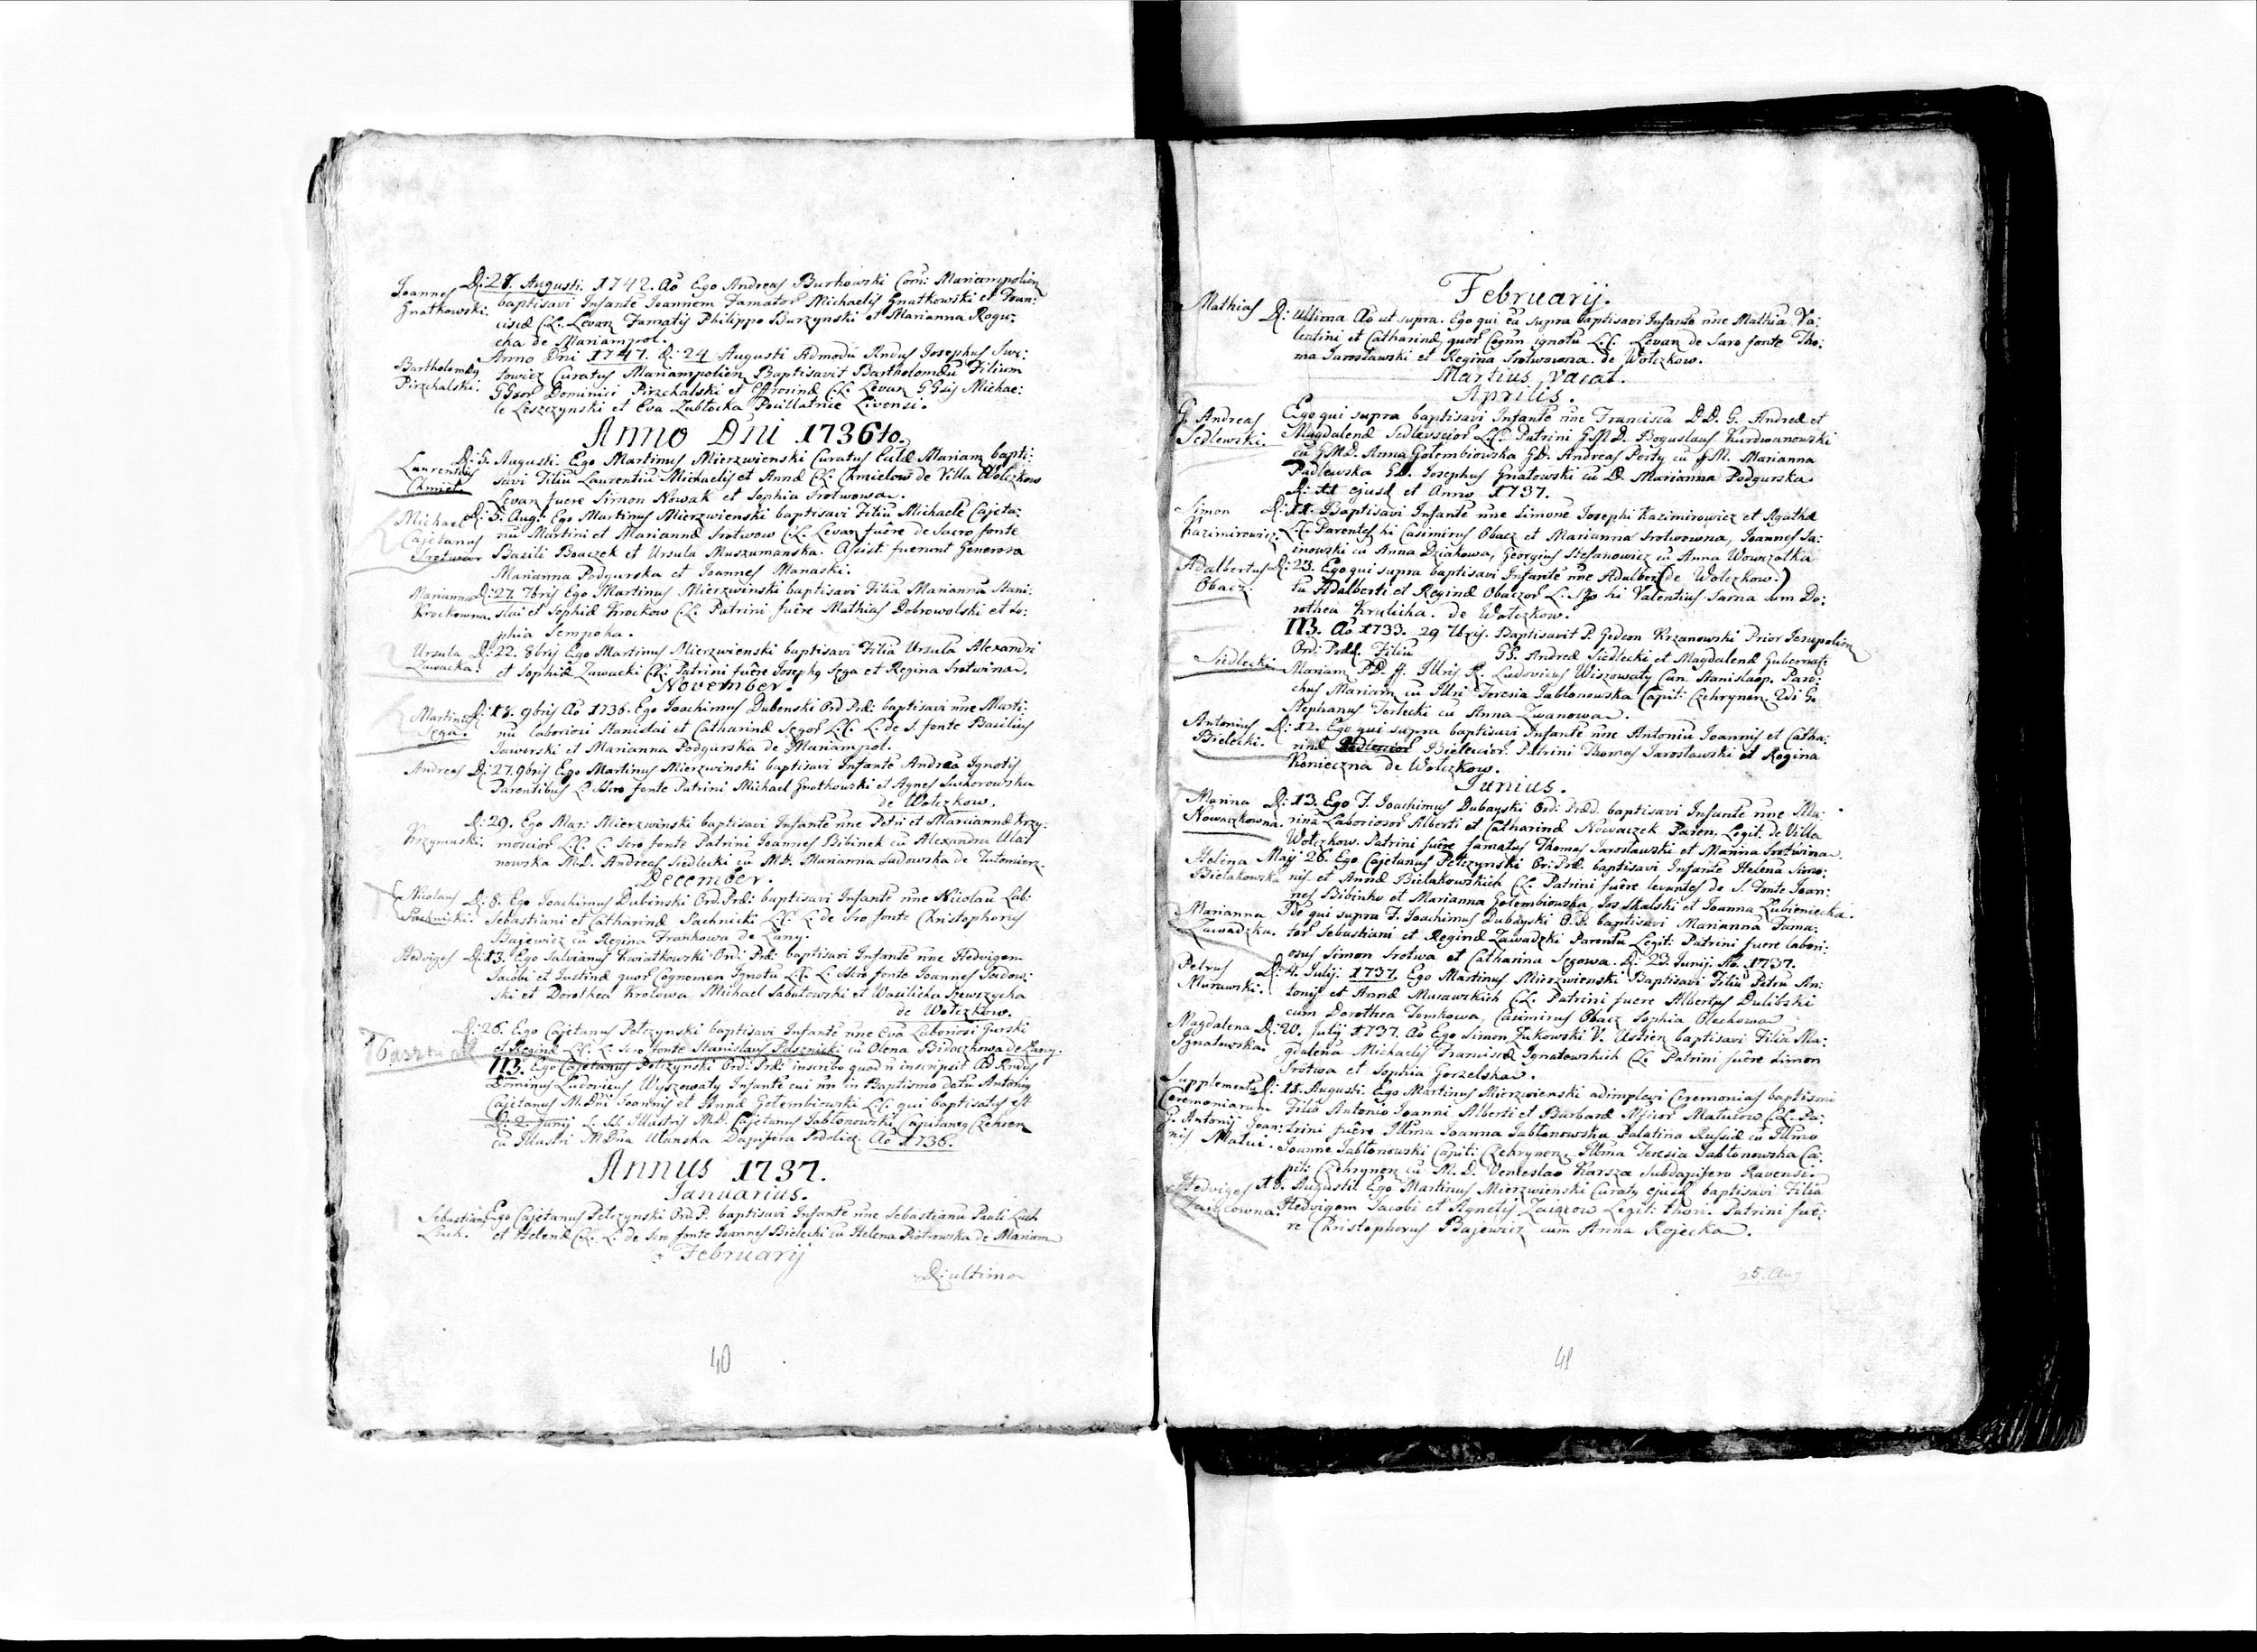 Joannes Gnatkowski.
D: 28. Augusti. 1742. Ao Ego Andreas Burkowski Com: Mariampolien
baptisavi Infantẽ Joannem Famator Michaelis Gnatkowski et Fran:
ciscæ C.L. Levan Famatis Philippo Burzynski et Marianna Rogu:
cka de Mariampol.
Bartholomẽg Pirzchalski.
Anno Dni 1747. D: 24 Augusti Admodũ Rndus Josephus Swę:
towicz Curatus Mariampolien Baptisavit Bartholomæũ Filium
GGror Dominici Pirzchalski et Effrosinæ C.L. Levan GGsis Michae:
le Leszczynski et Eva Zubłocka Livensi.
Anno Dni 1736to.
Laurentius Chmiel.
D: 5. Augusti. Ego Martinus Mierzwienski Curatus Eccł Mariam bapti:
savi Filiũ Laurentiũ Michaelis et Annæ C.L. Chmielow de Villa Wolczkow
Levan fuere Simon Nowak et Sophia Srotwowa.
Michael Cajetanus Srotwow
D: 5. Aug: Ego Martinus Mierzwienski baptisavi Filiũ Michaelẽ Cajeta:
nũ Martini et Mariannæ Srotwow C.L. Levan fuêre de Sacro fonte
Basili Boaczek et Ursula Muszumanska. Assist: fuerunt Generosa
Marianna Podgurska et Joannes Manaski.
Marianna Krockowna.
D: 27. 7bris Ego Martinus Mierzwinski baptisavi Filiã Mariannã Stani:
slai et Sophiæ Krockow C.L. Patrini fuêre Mathias Dobrowolski et So:
phia Sempoka.
Ursula Zawacka.
D: 22. 8bris Ego Martinus Mierzwienski baptisavi Filiã Ursulã Alexandri
et Sophiæ Zawacki C.L. Patrini fuêre Josephg Sęga et Regina Srotwina.
November.
Martinus Sęga.
D: 18. 9bris Ao 1736. Ego Joachimus Dubenski Ord Præ: baptisavi nne Marti:
nũ laboriosi Stanislai et Catharinæ Segor L.C. L. de S. fonte Basilius
Jaworski et Marianna Podgurska de Mariampol.
Andreas
D: 27. 9bris Ego Martinus Mierzwinski baptisavi Infantẽ Andreã Ignotis
Parentibus L. Sacro fonte Patrini Michael Gnatkowski et Agnes Suchorowska
de Wołczkow.
Krzymuski.
D: 29. Ego Mar: Mierzwinski baptisavi Infantẽ nne Petri et Mariannæ Krzy:
moscior L.C. L. Scro fonte Patrini Joannes Bibinek cũ Alexandra Ula:
nowska M.D. Andreas Siedlecki cũ M.D. Marianna Sadowska de Tutomierz.
December.
Nicolaus Sachnicki.
D: 8. Ego Joachimus Dubinski Ord. Præ: baptisavi Infantẽ nne Nicolaũ Lab:
Sebastiani et Catharinæ Sachnicki L.C. L. de Sro fonte Christophorus
Bajewicz cũ Regina Frankowa de Lany.
Hedviges
D: 13. Ego Salvianus Kwiatkowski Ord: Præ: baptisavi Infantẽ nne Hedvigem
Jacobi et Justinæ quor Cognomen Ignotũ L.C. L. Scro fonte Joannes Sadow:
ski et Dorothea Krolowa, Michael Sabatowski et Wasilicha Szewszycha
de Wołczkow.
D: 26. Ego Cajetanus Pełczynski baptisavi Infantẽ nne Evã Laboriosi Gurski
et Reginæ L.C. L. Scro fonte Stanislaus Pasznicki cũ Olena Bidoczkowa de Lany.
NB. Ego Cajetanus Pełczynski Ord: Præ: inscribo quod ñ inscripsit Ad Rndus
Dominus Ludovicus Wyszowaty Infantẽ cui nñ in Baptismo datũ Antonig
Cajetanus M. Dni Joannis et Annæ Gołembiowski L.C. qui baptisatus est
D: 2. Junij L. SS. Illustris M.D. Cajetanus Jabłonowski Capitaneg Czehren
cũ Illustri M Dna Ulanska Dapifera Podolicz. Ao 1736.
Annus 1737.
Januarius.
Sebastiang Luch.
Ego Cajetanus Pełczynski Ord. P. baptisavi Infantẽ nne Sebastianũ Pauli Luch
et Helenæ C.L. L. de Sro fonte Joannes Bielecki cũ Helena Piotrowska de Mariam
Februarij
D: ultima
40
Februarij.
Mathias
D: Ultima Ao ut supra. Ego qui eã supra baptisavi Infantẽ nne Mathiã Va:
lentini et Catharinæ, quor Cognn ignotũ L.C. Levan de Saro fonte Tho:
ma Jarosławski et Regina Srotwowna. de Wołczkow.
Martius Vacat.
Aprilis.
G. Andreas Sedlewski.
Ego qui supra baptisavi Infantẽ nne Franciscã D.D. G. Andreæ et
Magdalenæ Sedlevscior L.C. Patrini GM D. Boguslaus Kurdwanowski
cũ GMD. Anna Gołembiowska GD. Andreas Perty cũ GM. Marianna
Padlewska GD. Josephus Gnatowski cũ D. Marianna Podgurska.
D: 11 ejusd et Anno 1737.
Simon Kazimirowicz.
D: 11. Baptisavi Infantẽ nne Simonẽ Josephi Kazimirowicz et Agathæ
L.C. Parentes hi Casimirus Obacz et Marianna Srotwowna, Joannes Sa:
inowski cũ Anna Dziakowa, Georgius Stefanowicz cũ Anna Wowczalka
Adalbertus Obacz.
D: 23. Ego qui supra baptisavi Infantẽ nne Adalber (de Wołczkow.)
tũ Adalberti et Reginæ Obaczor L. Spo hi Valentius Sarna cum Do:
rothea Krulicha. de Wołczkow.
NB. Ao 1733. 29 7bris. Baptisavit P. Gedeon Krzanowski Prior Jesupolien
Ord: Præd. Filiũ GG. Andreæ Siedlecki et Magdalenæ Gubernat:
Siedlecki
Mariam PP. ff. Illris R. Ludovicus Wiszowaty Can. Stanislaop. Paro:
chus Mariam cũ Illri Teresia Jabłonowska Capit: Czehrynen. 2di G.
Stephanus Terlecki cũ Anna Zwanowa.
Antonius Bielecki.
D: 12. Ego qui supra baptisavi Infantẽ nne Antoniũ Joannis et Catha:
rinæ Bieleccior. Patrini Thomas Jarosławski et Regina
Konieczna de Wolczkow.
Junius.
Marina Nowaczkowna.
D: 13. Ego F. Joachimus Dubayski Ord: Præd. baptisavi Infantẽ nne Ma:
rinã Laboriosor Alberti et Catharinæ Nowaczek Paren, Legit: de Villa
Wołczkow. Patrini fuêre famatus Thomas Jarosławski et Marina Srotwina.
Helena Bielakowska
Maij 26. Ego Cajetanus Pełczynski Or: Præ: baptisavi Infantẽ Helenã Joan:
nis et Annæ Bielakowskich C.L. Patrini fuêre levantes de S. Fonte Joan:
nes Bibinko et Marianna Gołembiowska, Jos Skalski et Joanna Lubieniecka.
Marianna Zawadzka.
Idẽ qui supra F. Joachimus Dubayski O.P. baptisavi Mariannã Fama:
tor Sebastiani et Reginæ Zawadzki Parentũ Legit: Patrini fuere labori:
osus Simon Srotwa et Catharina Segowa. D: 23. Junij Ao. 1737.
Petrus Murawski.
D: 4. Julij: 1737. Ego Martinus Mierzwienski Baptisavi Filiũ Petrũ An:
tonij et Annæ Murawskich C.L. Patrini fuere Albertus Dulibski
cum Dorothea Tomkowa, Casimirus Obacz Sophia Olechowa
Magdalena Ignatowska.
D: 20. Julij 1737. Ao Ego Simon Zukowski V. Ustien baptisavi Filiã Ma:
gdalenã Michaelis Franciscæ Ignatowskich C.L. Patrini fuêre Simon
Srotwa et Sophia Gorzelska.
Supplementũ Ceremoniarum G. Antonij Joan: nis Matui.
D: 11. Augusti. Ego Martinus Mierzwienski adimplevi Ceremonias baptismi
Filio Antonio Joanni Alberti et Barbaræ Matuiow C.L. Pa:
trini fuêre Illma Joanna Jabłonowska Palatina Russiæ cũ Illmo
Joanne Jabłonowski Capit: Czehrynen, Illma Teresia Jabłonowska Ca:
pit: Czehrynen cũ M.D. Venceslao Karsza Subdapifero Ravensi.
Hedviges Zaięcowna.
18. Augusti. Ego Martinus Mierzwienski Curatg ejusd baptisavi Filiã
Hedvigem Jacobi et Agnetis Zaięcow Legit: thori. Patrini fue:
re Christophorus Bajewicz cum Anna Rojecka.
25. Aug
41